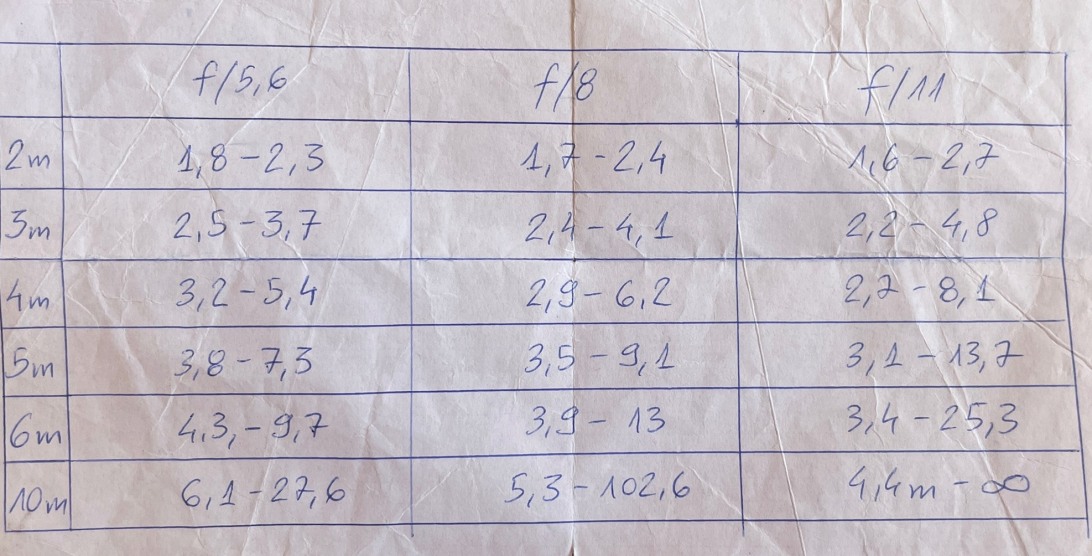 f/5,6 f/8 f/11
2m 1,8-2,3 1,7-2,4 1,6-2,7
3m 2,5-3,7 2,4-4,1 2,2-4,8
4m 3,2-5,4 2,9-6,2 2,7-8,1
5m 3,8-7,3 3,5-9,1 3,1-13,7
6m 4,3,-9,7 3,9-13 3,4-25,3
10m 6,1-27,6 5,3-102,6 4,4m-∞